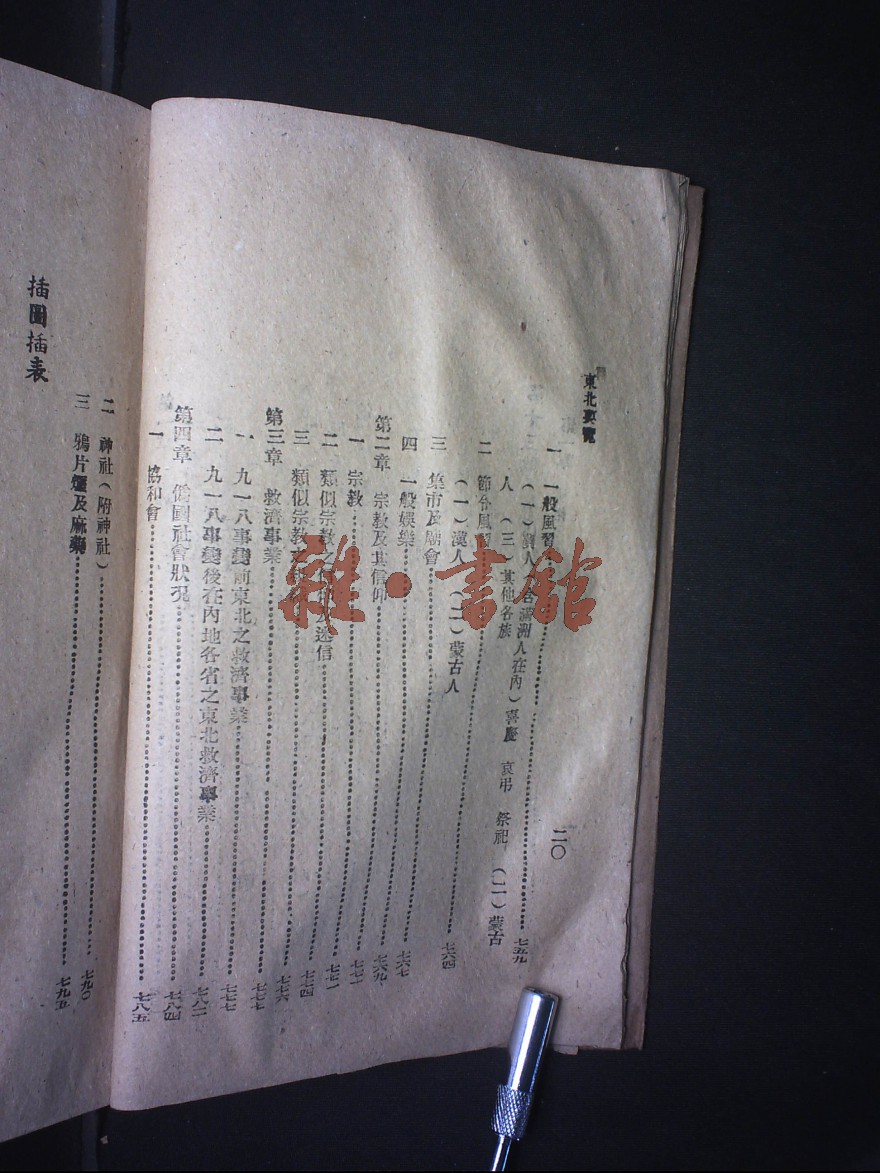 東北要覽
二〇
一 一般風習 七五九
（一）漢人（含滿洲人在內）喜慶 哀弔 祭祀 （二）蒙古
人 （三）其他各族
二 節令風習 七六四
（一）漢人（二）蒙古人
三 集市及廟會 七六七
四 一般娛樂 七六九
第二章 宗教及其信仰 七七一
一 宗教 七七一
二 類似宗教之信 迷信 七七四
三 類似宗教之 七七六
第三章 救濟事業 七七七
一 九一八事變前東北之救濟事業 七七七
二 九一八事變後在內地各省之東北救濟事業 七八二
第四章 偽國社會狀況 七八四
一 協和會 七八五
二 神社（附神社） 七九〇
三 鴉片煙及麻藥 七九五
插圖插表
雜·書館